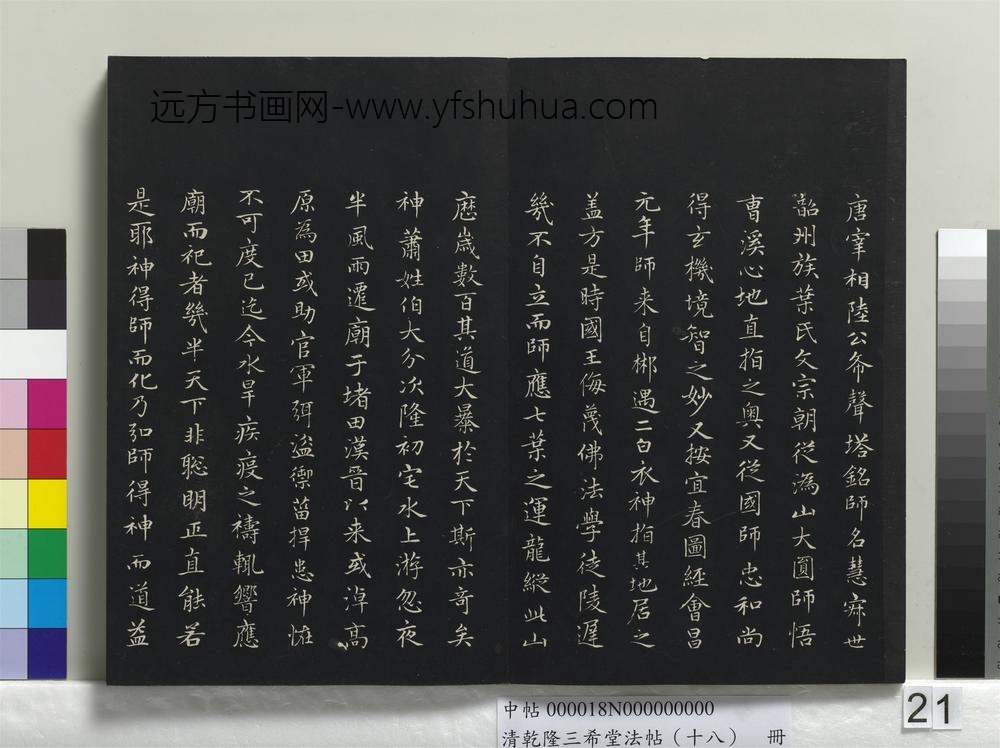 远方书画网-www.yfshuhua.com
唐宰相陸公希聲塔銘師名慧寂世
韶州族葉氏文宗朝從溈山大圓師悟
曹溪心地直指之奧又從國師忠和尚
得玄機境智之妙又按宜春圖經會昌
元年師来自郴遇二白衣神指其地居之
盖方是時國王侮蔑佛法學徒陵遲
幾不自立而師應七葉之運龍縱此山
歷歲數百其道大暴於天下斯亦奇矣
神蕭姓伯大分次隆初宅水上游忽夜
半風雨遷廟于堵田漢晉以来或淖高
原為田或助官軍弭盜禦菑捍患神恠
不可度已迄今水旱疾疫之禱輒響應
廟而祀者幾半天下非聡明正直能若
是耶神得師而化乃知師得神而道益
中帖 000018N000000000
清乾隆三希堂法帖（十八） 冊
21